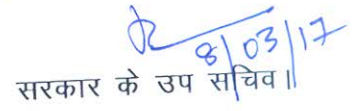 8/03/17
सरकार के उप सचिव।